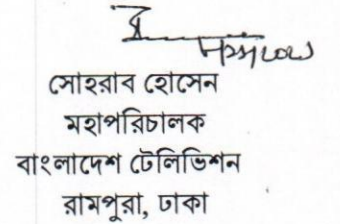 সোহরাব হোসেন
মহাপরিচালক
বাংলাদেশ টেলিভিশন
রামপুরা, ঢাকা